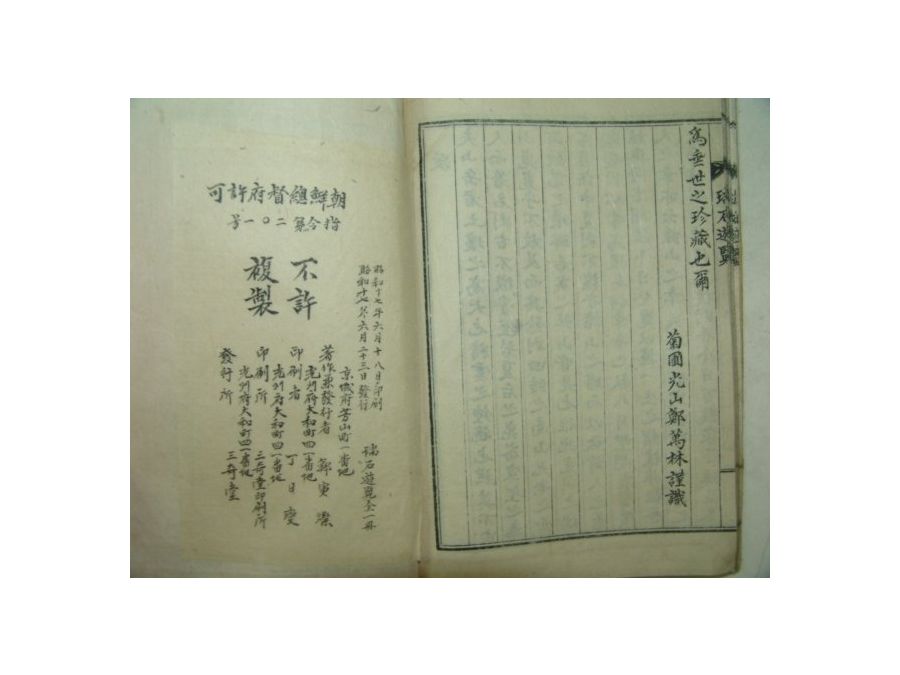 瑞石遊覽
爲垂世之珍藏也爾
菊圃光山鄭萬林謹識
朝鮮總督府許可
指令第二〇一号
不許
複製
昭和十七年六月十八日印刷
昭和十七年六月二十三日發行
瑞石遊覽全一冊
京城府芳山町一番地
著作兼發行者 鄭寅
光州府大和町四一番地
印刷者 丁日燮
光州府大和町四一番地
印刷所 三奇堂印刷所
光州府大和町四一番地
發行所 三奇堂